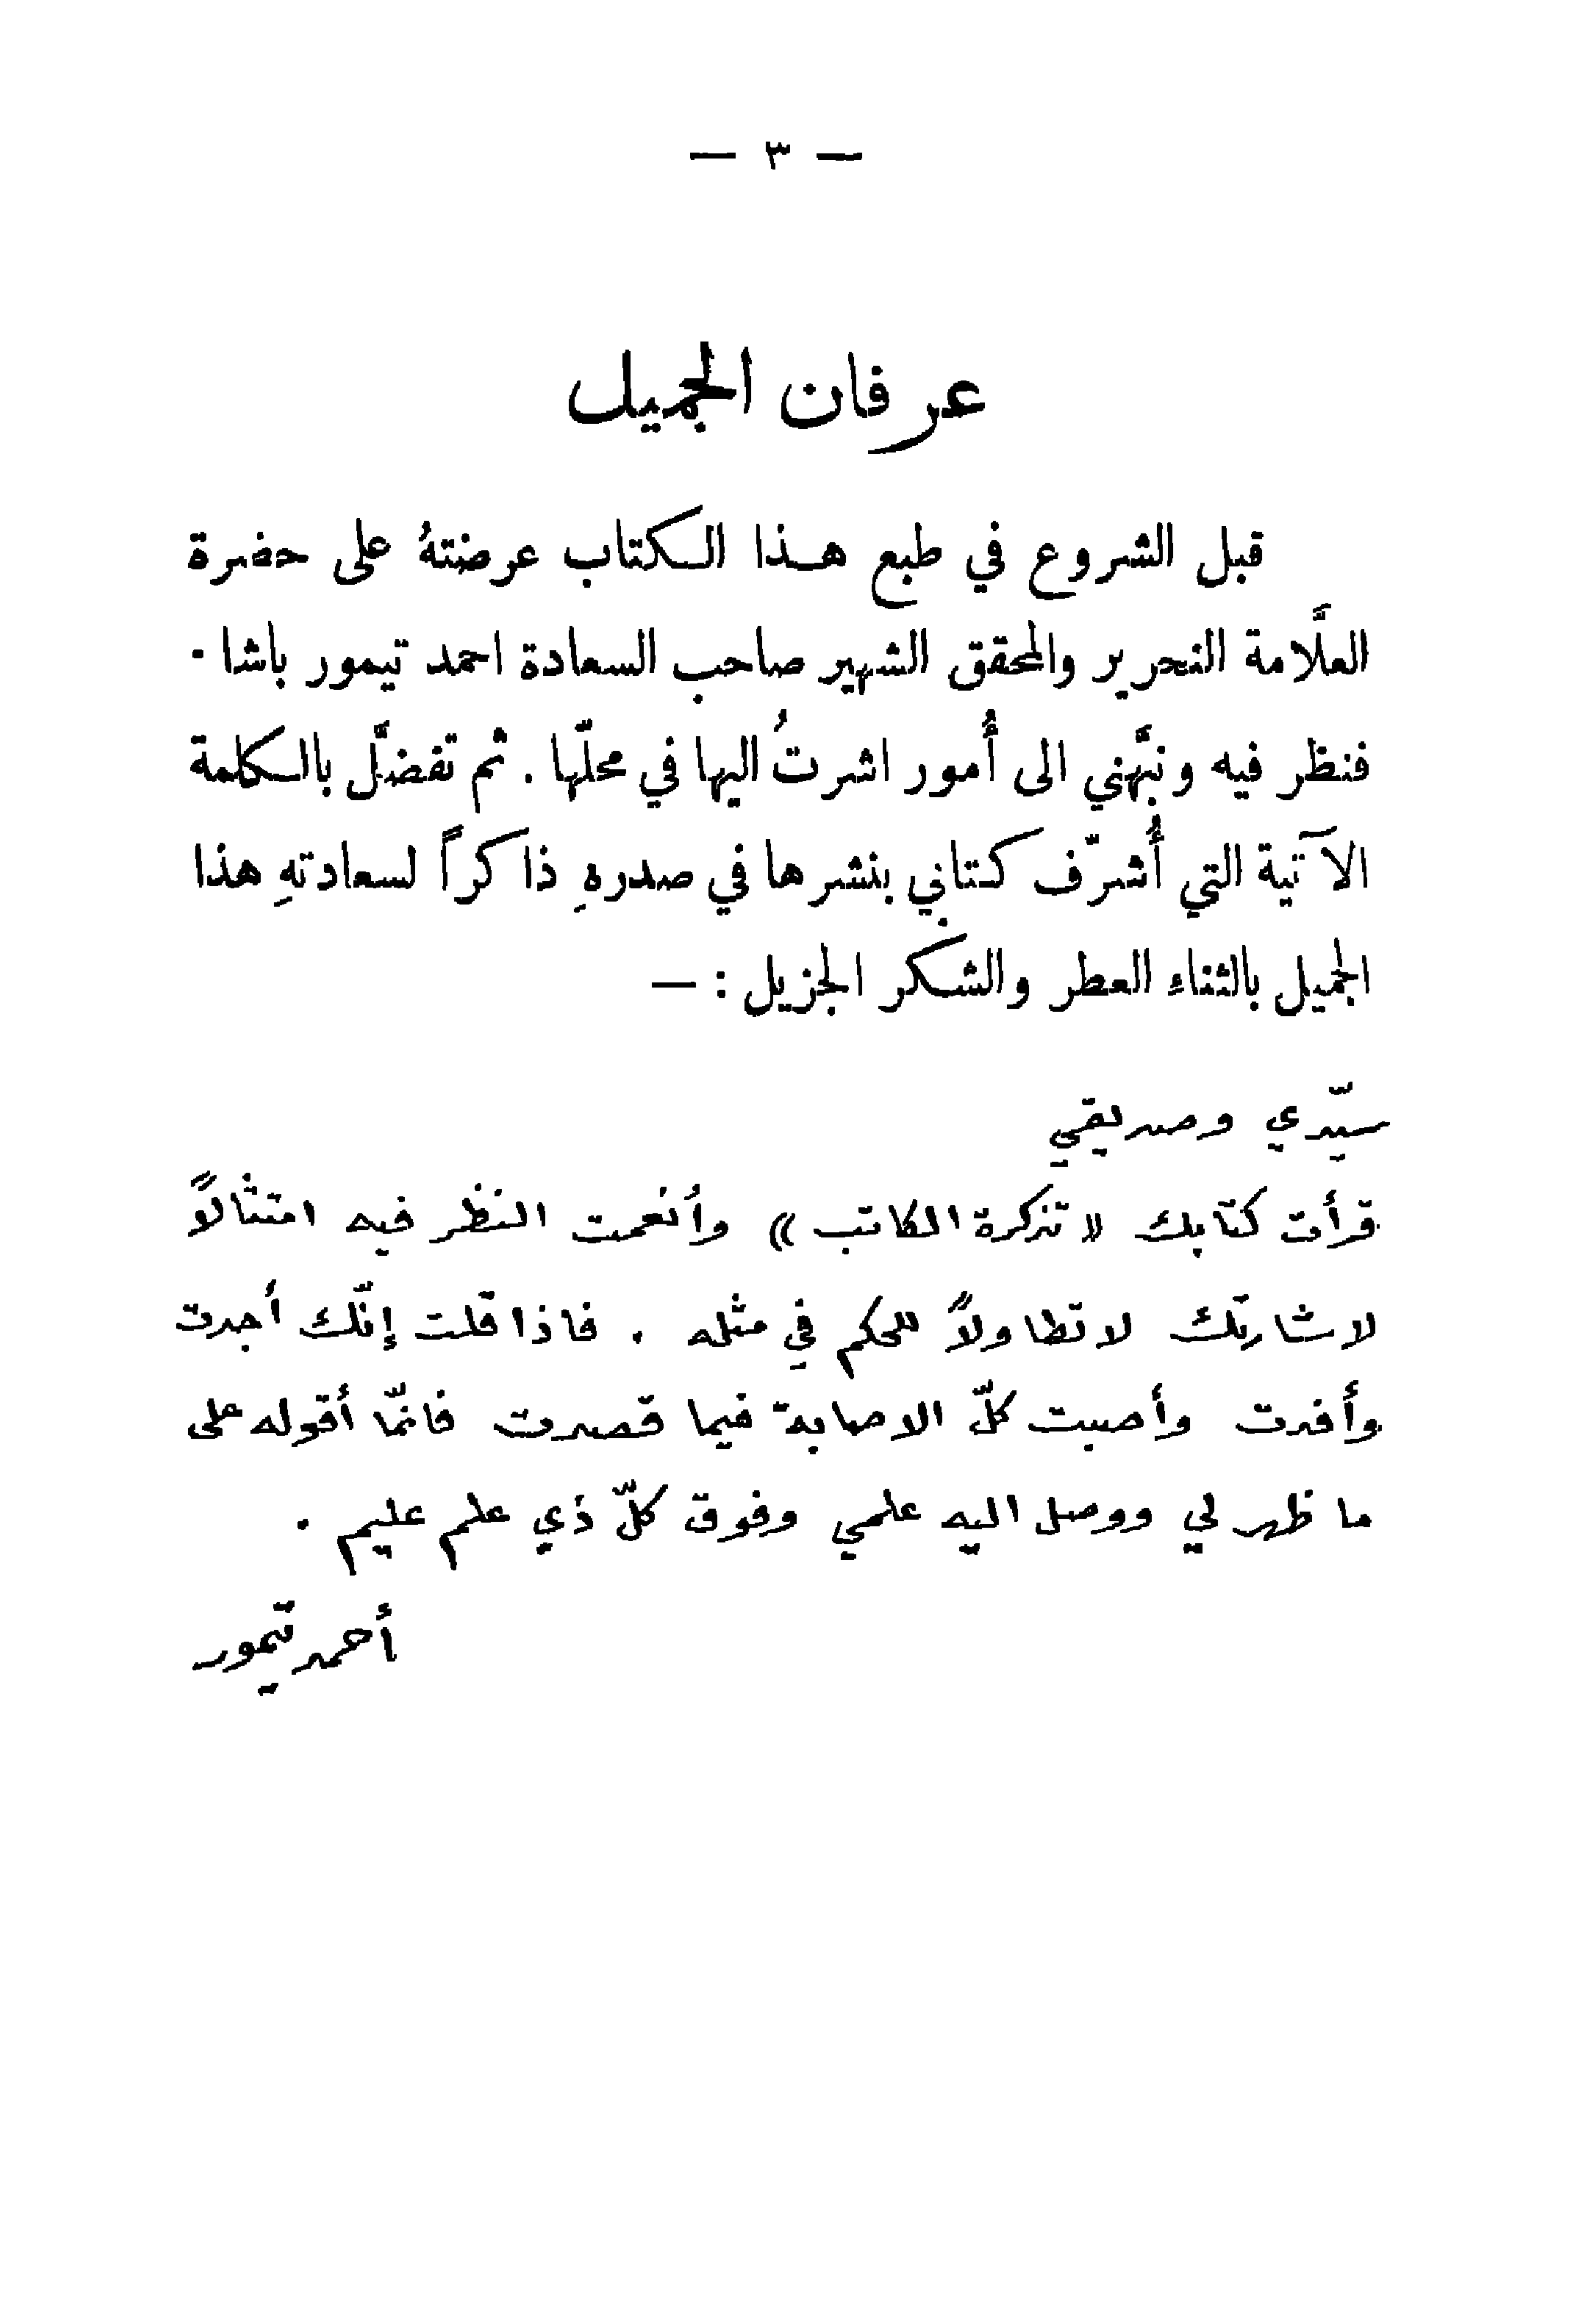 — ٣ —
عرفان الجميل
قبل الشروع في طبع هذا الكتاب عرضتهُ على حضرة
العلَّامة النحرير والمحقق الشهير صاحب السعادة احمد تيمور باشا .
فنظر فيه ونبَّهني الى أُمور اشرتُ اليها في محلّها . ثم تفضَّل بالكلمة
الآتية التي أُشرّف كتابي بنشرها في صدرهِ ذاكراً لسعادتهِ هذا
الجميل بالثناء العطر والشكر الجزيل : —
سيّدي وصديقي
قرأت كتابك « تذكرة الكاتب » وأنعمت النظر فيه امتثالاً
لاشارتك لا تطاولاً للحكم في مثله . فاذا قلت إنّك أجدت
وأفدت وأصبت كلّ الاصابة فيما قصدت فانّما أقوله على
ما ظهر لي ووصل اليه علمي وفوق كلّ ذي علم عليم .
أحمد تيمور